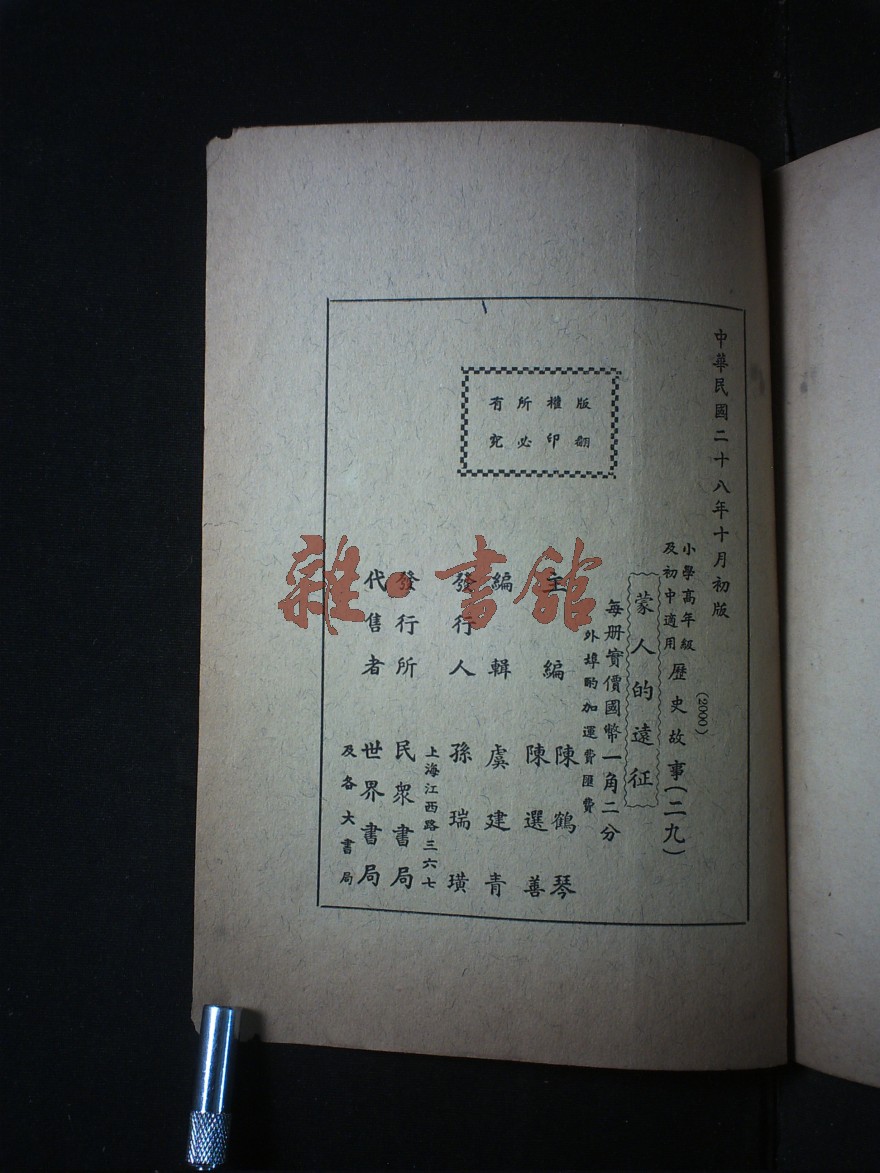 中華民國二十八年十月初版
(2000)
小學高年級
及初中適用
歷史故事(二九)
蒙人的遠征
每册實價國幣一角二分
外埠酌加運費匯費
版權所有
翻印必究
主編 陳鶴琴
陳選善
編輯 虞建青
發行人 孫瑞璜
上海江西路三六七
發行所 民衆書局
代售者 世界書局
及各大書局
雜·書館